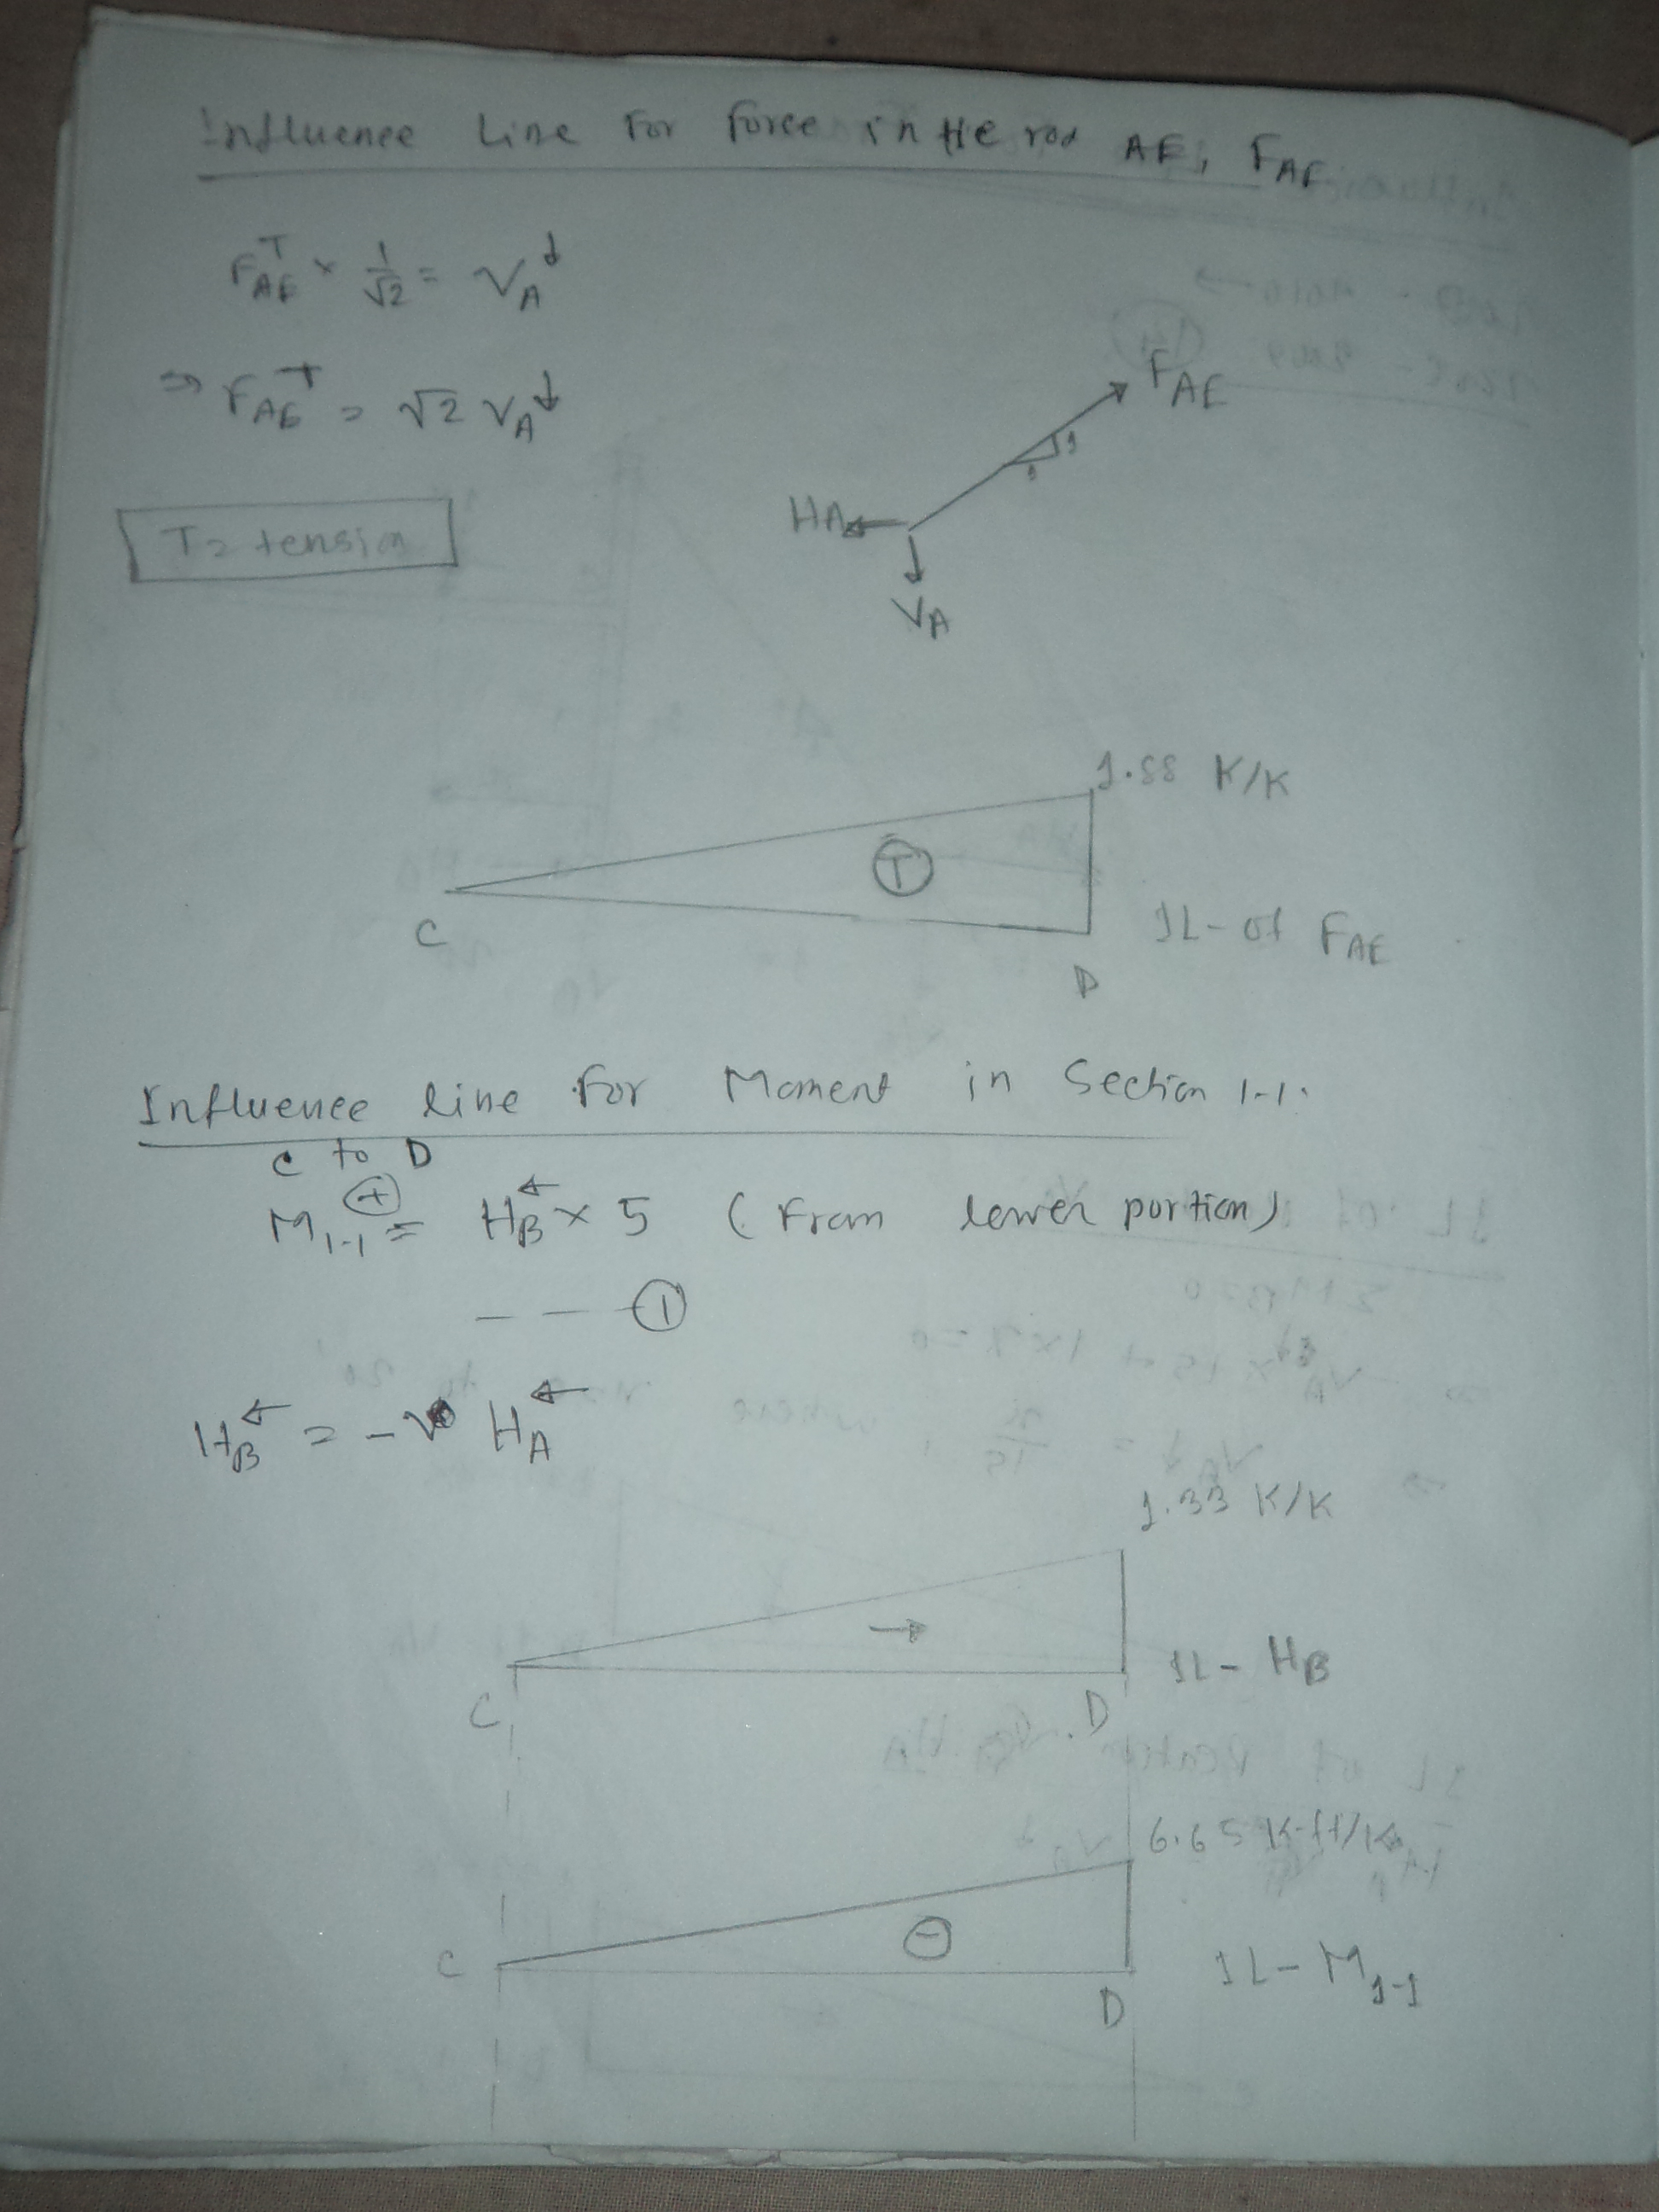 Influence Line For Force in the rod AE, F_AE
F_AE^T × 1/√2 = V_A ↓
⇒ F_AE^T = √2 V_A ↓
F_AE
1
1
T = tension
H_A
V_A
1.88 K/K
T
C
IL- of F_AE
D
Influence line for Moment in Section 1-1.
C to D
M_1-1 ⊕ = H_B ← × 5 (From lower portion)
- - - ①
H_B ← = - H_A ←
1.33 K/K
→
IL- H_B
C
D
6.65 K-ft/K
⊖
C
IL- M_1-1
D